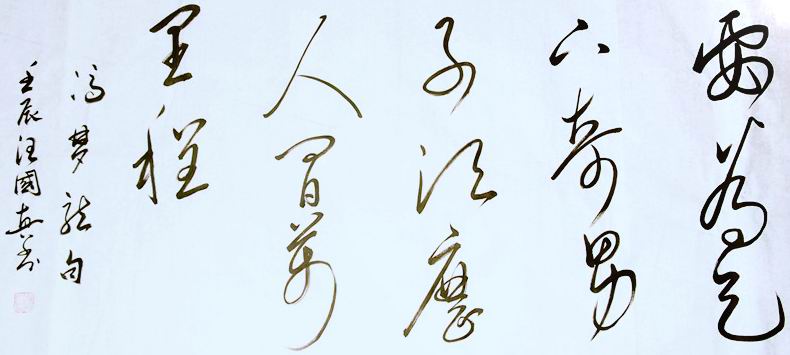 要為天
下奇男
子須歷
人間萬
里程
馮夢龍句
壬辰汪國真書